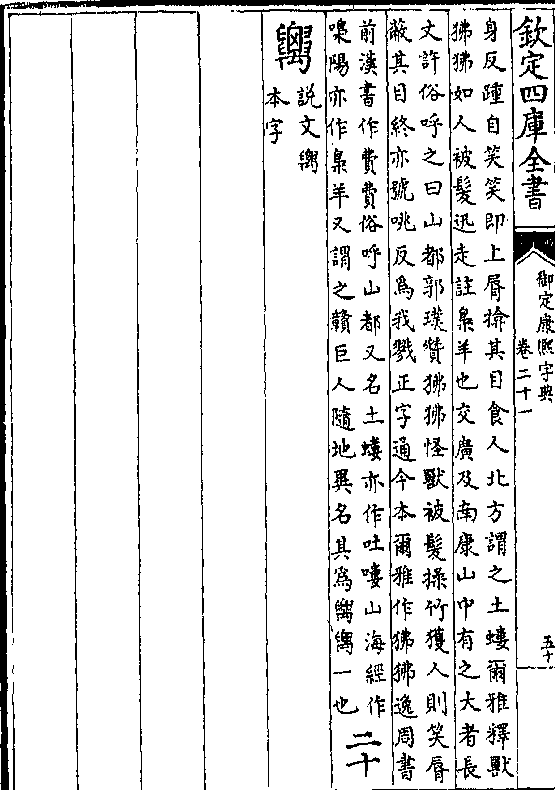 欽定四庫全書
御定康熙字典
卷二十一
五十
身反踵自笑笑即上脣揜其目食人北方謂之土螻爾雅釋獸
狒狒如人被髮迅走註梟羊也交廣及南康山中有之大者長
丈許俗呼之曰山都郭璞贊狒狒怪獸被髮操竹獲人則笑脣
蔽其目終亦號咷反為我戮正字通今本爾雅作狒狒逸周書
前漢書作費費俗呼山都又名土螻亦作吐嘍山海經作
嘄陽亦作梟羊又謂之贛巨人隨地異名其為𥝋𥝋一也
二十
說文
本字